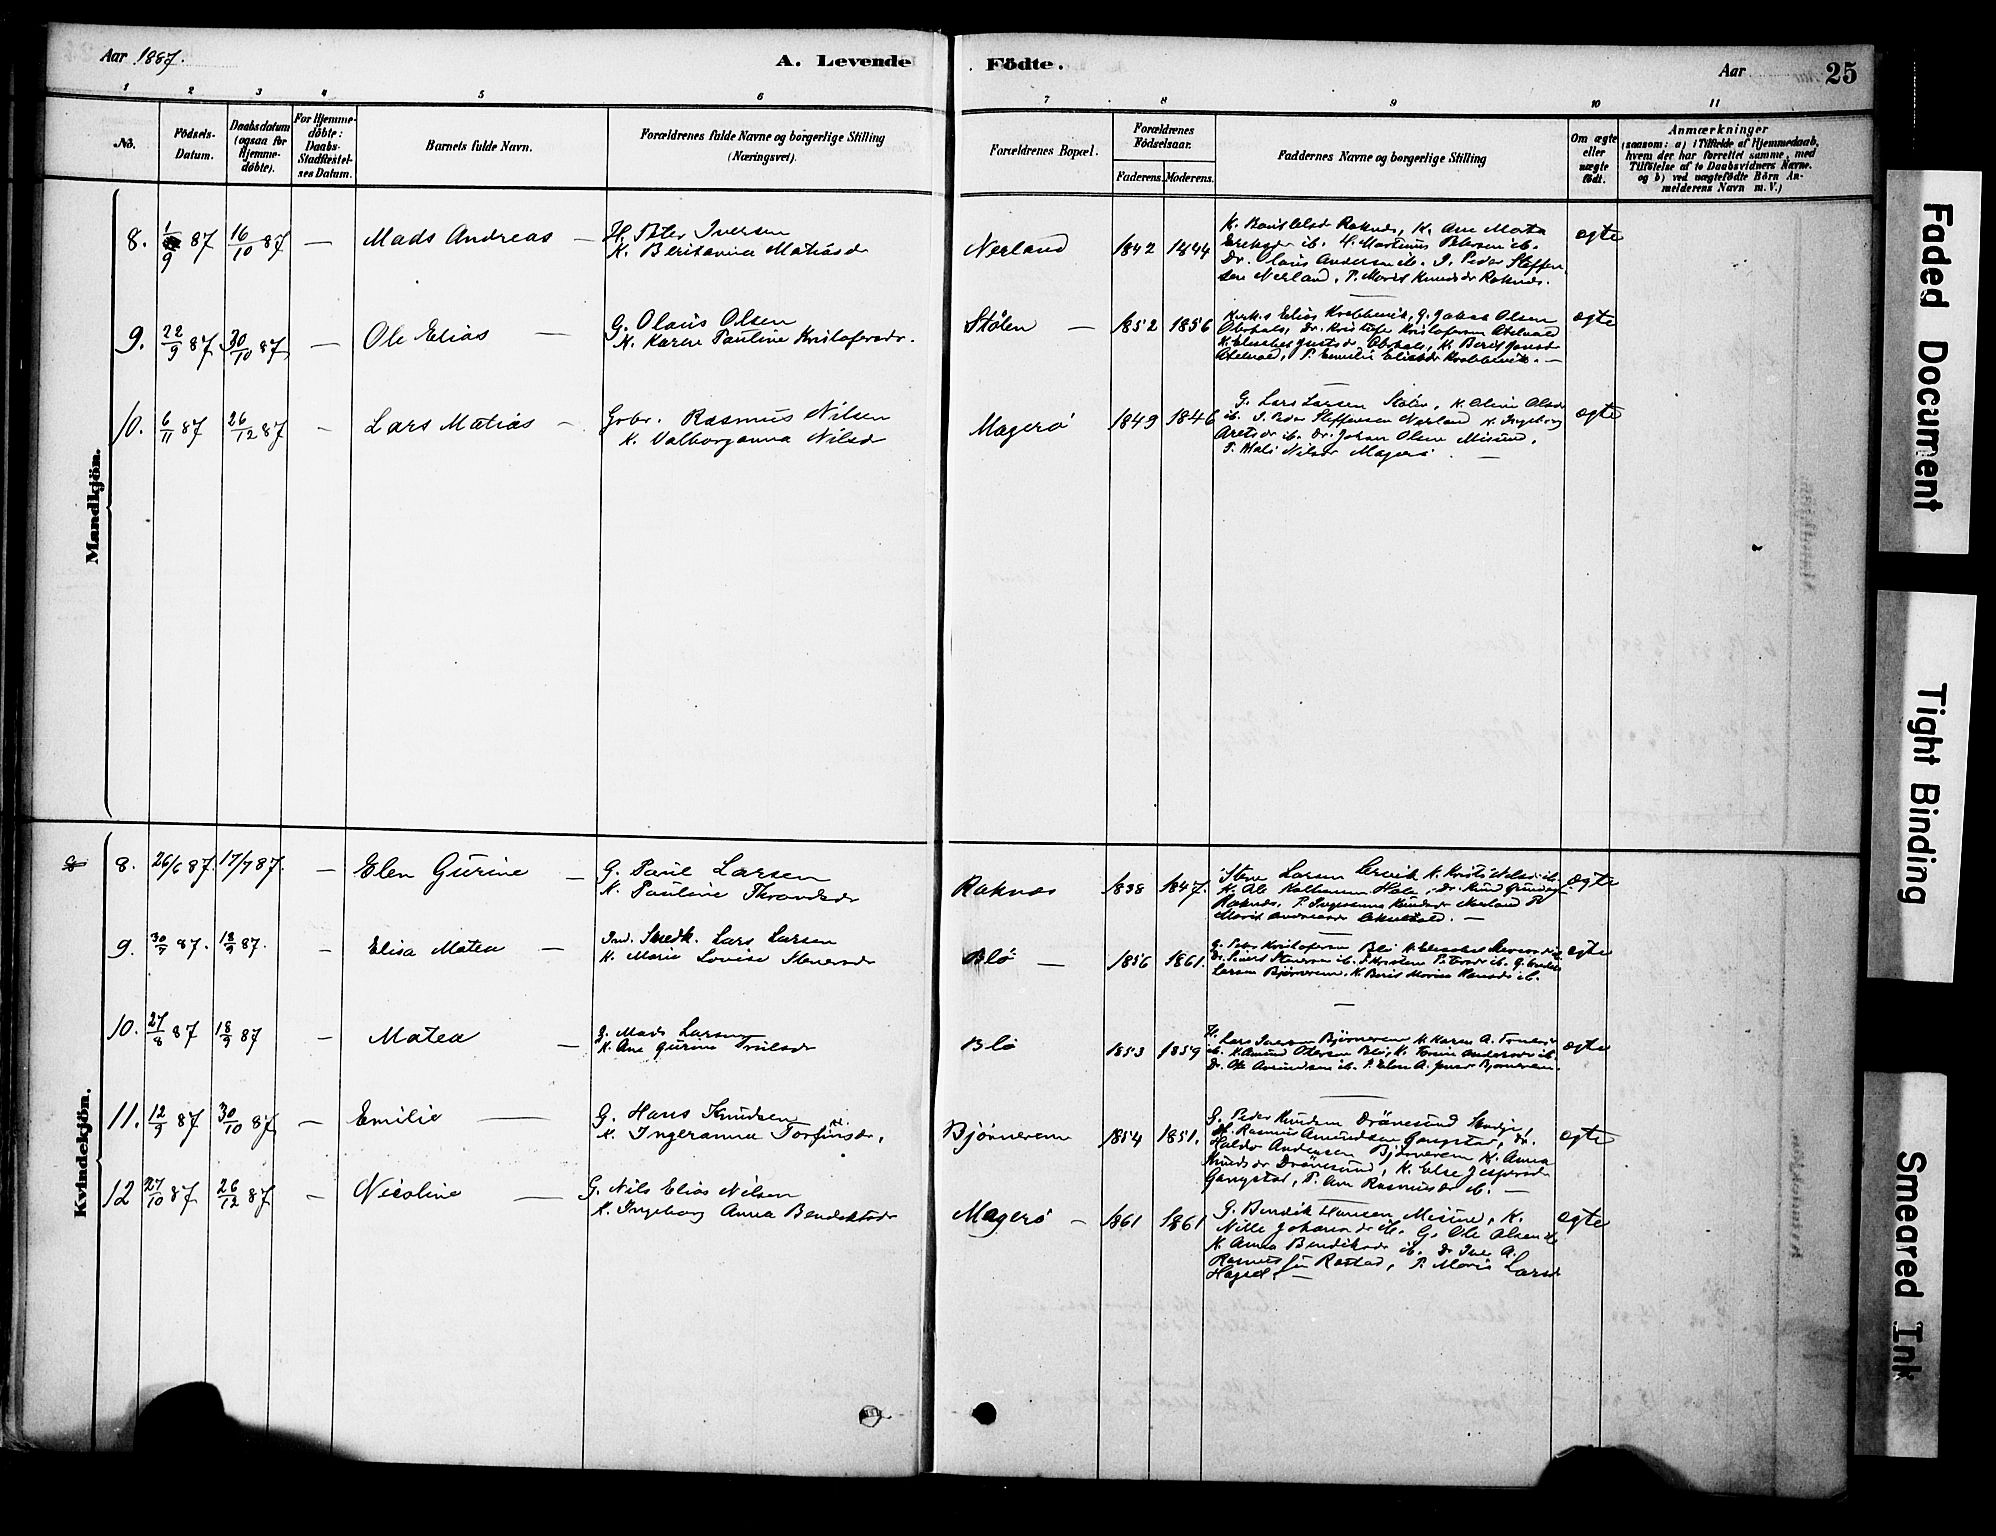 Aar 1887.
A. Levende Födte.
Aar
25
1 2 3 4 5 6 7 8 9 10 11
No.
Födsels-Datum.
Daabsdatum (ogsaa for Hjemme-döbte).
For Hjemme-döbte: Daabs-Stadfæstel-ses Datum.
Barnets fulde Navn.
Forældrenes fulde Navne og borgerlige Stilling (Næringsvei).
Forældrenes Bopæl.
Forældrenes Födselsaar.
Faderens. Moderens.
Faddernes Navne og borgerlige Stilling
Om ægte eller uægte födt.
Anmærkninger
(saasom: a) i Tilfælde af Hjemmedaab, hvem der har forrettet samme, med Tilföielse af to Daabsvidners Navne. og b) ved uægtefödte Börn An-melderens Navn m. V.)
Mandkjön.
8. 1/9 87 16/10 87 — Mads Andreas —
H. Peter Iversen
K. Beritanna Matiasdr
Nerland 1842 1844
Ane Marta
Martinus Petersen ib.
Dr. Olaus Andersen ib. I. Peder Steffen
sen Nerland, P. Marit Knudsdr Raknes.
ægte
9. 22/9 87 30/10 87 — Ole Elias —
G. Olaus Olsen
K. Karen Pauline Kristofersdr.
Stølen — 1852 1856
Elias Krabbevik, G. Jakob Olsen
Dr. Kristofer Kristofersen
K. Berit
P. Emilie Eliasdr Krabbevik. —
ægte
10. 6/11 87 26/12 87 — Lars Matias —
Grbr. Rasmus Nilsen
K. Valborganna Nilsdr
Magerø 1849 1846
G. Lars Larsen Stølen, K. Oline Olsdr
ib. I. Peder Steffensen Nerland K. Ingeborg
ib. Dr. Johan Olsen Misund,
P. Mali Nilsdr Magerø —
ægte
Kvindekjön.
8. 26/6 87. 17/7 87. — Elen Gurine —
G. Paul Larsen
K. Pauline Throndsdr
Raknes 1838 1847.
Larsen Lervik
Raknes, P. Ingeranna Knudsdr Nerland
Marit
ægte
9. 30/7 87. 18/9 87. — Elisa Matea —
Ind. Smedk. Lars Larsen
K. Marie Lovise Stenersdr
Blø — 1856 1861.
G. Peter Kristofersen Blø
Larsen Bjørnerem. K. Berit Marie Hansdr ib.
ægte
10. 27/8 87 18/9 87 — Matea —
G. Mads Larsen
K. Ane Gurine Trulsdr
Blø 1853 1859
H. Lars Iversen Bjørnerem K. Karen A.
ib. K. Amund Ottersen Blø, K.
Dr. Ole Amundsen ib. P. Elen A. Bjørnerem.
ægte
11. 12/9 87 30/10 87 — Emilie —
G. Hans Knudsen
K. Ingeranna Torfinsdr,
Bjørnerem 1854 1851.
G. Peder Knudsen Drønesund
H. Rasmus Amundsen Gangstad, Dr.
Haldor Andersen Bjørnerem K. Anna
Knudsdr Drønesund, K. Else Jespersdr
Gangstad, P. Ane Rasmusdr ib. —
ægte
12 27/10 87 26/12 87 — Nicoline —
G. Nils Elias Nilsen
K. Ingeborg Anna Bendiktsdr
Magerø — 1861 1861
G. Bendik Hansen Misund, K.
Nille Johansdr ib. G. Ole Olsen ib.
K. Anna Bendiksdr ib. Dr. Iver A.
Rasmus Rastad, P. Marie Larsdr
ægte
Faded Document
Tight Binding
Smeared Ink